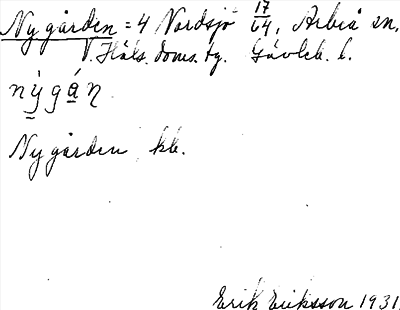 Nygården = 4 Nordsjö 17/64, Arbrå sn,
V. Häls. doms. tg. Gävleb. l.
nỳgá̱ṇ
Nygården kb.
Erik Eriksson 1931.